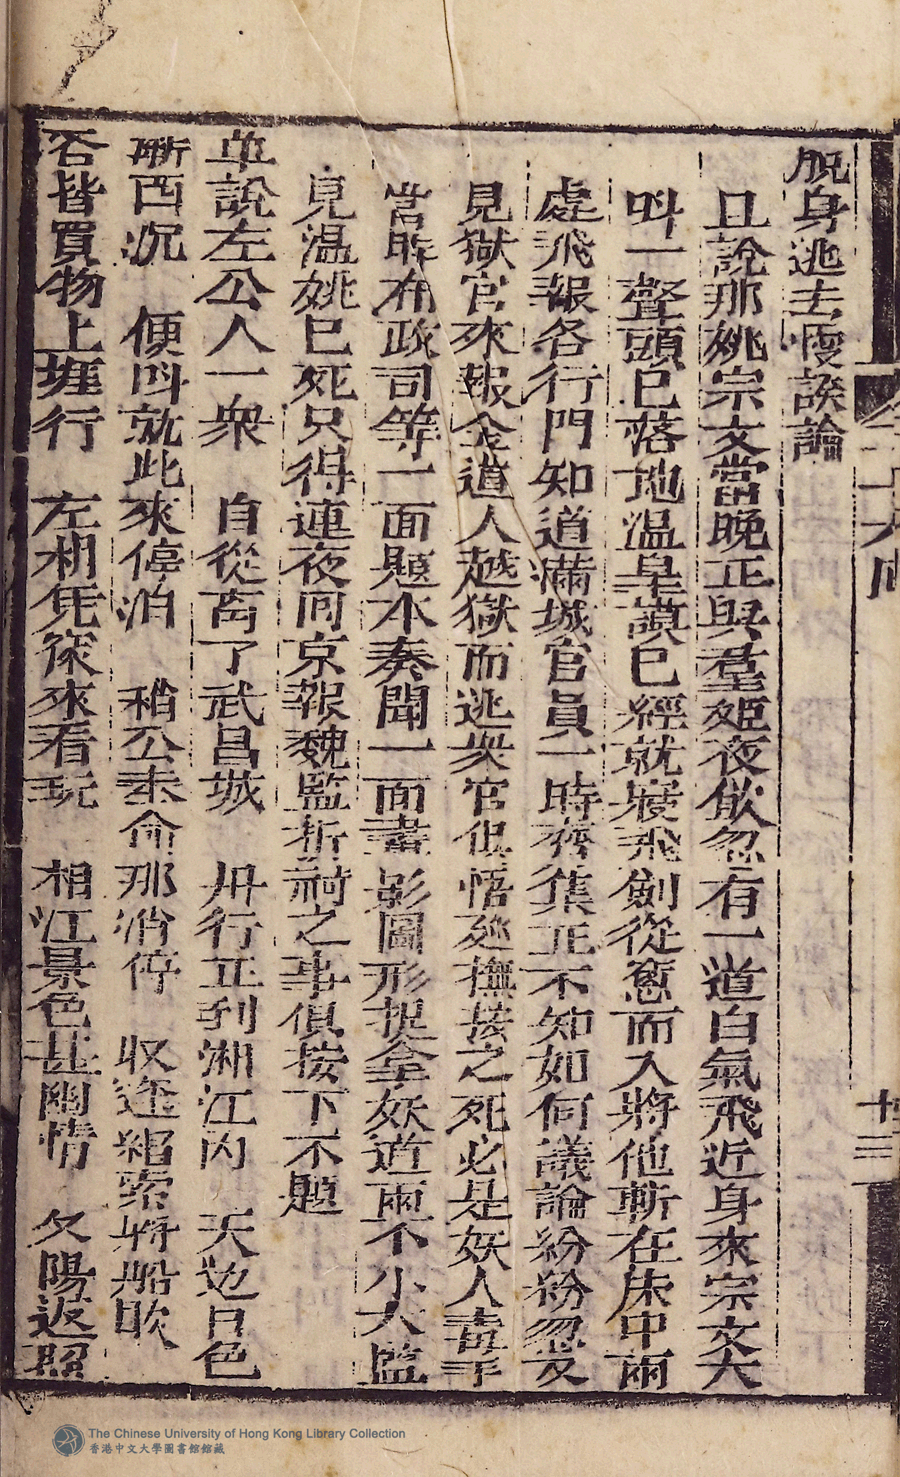 脫身逃去慢談論
且說那姚宗文當晚正與羣姬夜飲忽有一道白氣飛近身來宗文大
呌一聲頭已落地溫臯謨已經就寢飛劍從窓而入將他斬在床中兩
處飛報各衙門知道滿城官員一時齊集正不知如何議論紛紛忽又
見獄官來報金道人越獄而逃衆官俱悟廵撫按之死必是妖人毒手
當時布政司等一面題本奏聞一面畵影圖形捉拿妖道兩不小太監
見溫姚已死只得連夜同京報魏監折祠之事俱按下不題
單說左公人一衆　自從离了武昌城　舟行正到湘江內　天边日色
漸西沉　便呌就此來停泊　稍公奉命那消停　收逢縚索將船歇
客皆買物上堐行　左相凭窓來看玩　相江景色甚幽情　夕陽返照
十三
The Chinese University of Hong Kong Library Collection
香港中文大學圖書館館藏